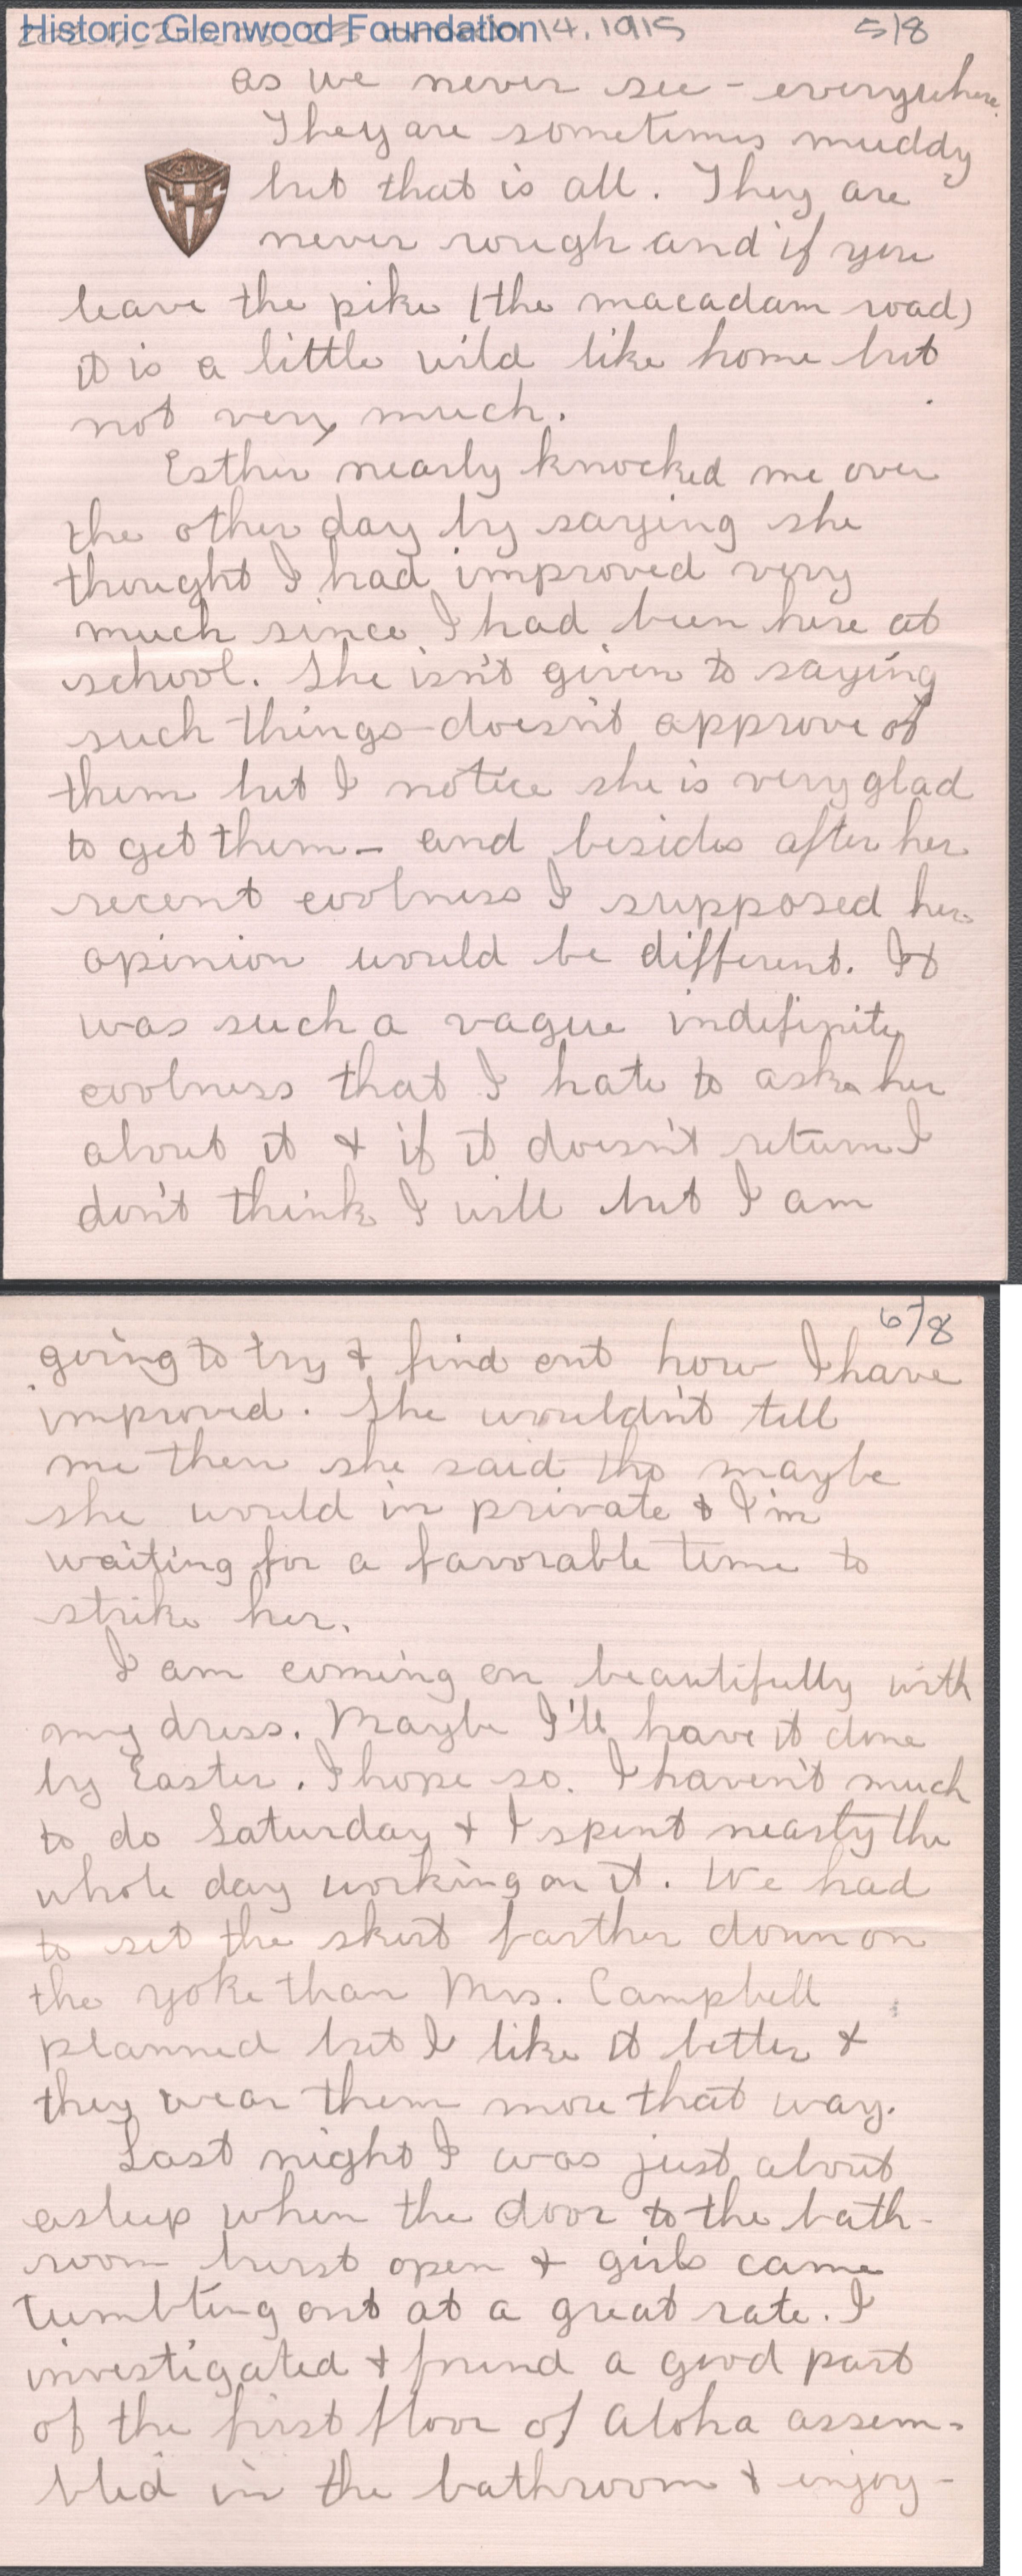 Historic Glenwood Foundation 14, 1915 5/8
as we never see - everywhere.
They are sometimes muddy
but that is all. They are
never rough and if you
leave the pike (the macadam road)
it is a little wild like home but
not very much.
Esther nearly knocked me over
the other day by saying she
thought I had improved very
much since I had been here at
school. She isn't given to saying
such things - doesn't approve of
them but I notice she is very glad
to get them - and besides after her
recent coolness I supposed her
opinion would be different. It
was such a vague indefinite
coolness that I hate to ask her
about it & if it doesn't return I
don't think I will but I am
6/8
going to try & find out how I have
improved. She wouldn't tell
me then she said tho maybe
she would in private & I'm
waiting for a favorable time to
strike her.
I am coming on beautifully with
my dress. Maybe I'll have it done
by Easter. I hope so. I haven't much
to do Saturday & I spent nearly the
whole day working on it. We had
to set the skirt farther down on
the yoke than Mrs. Campbell
planned but I like it better &
they wear them more that way.
Last night I was just about
asleep when the door to the bath-
room burst open & girls came
tumbling out at a great rate. I
investigated & found a good part
of the first floor of Aloha assem-
bled in the bathroom & enjoy-